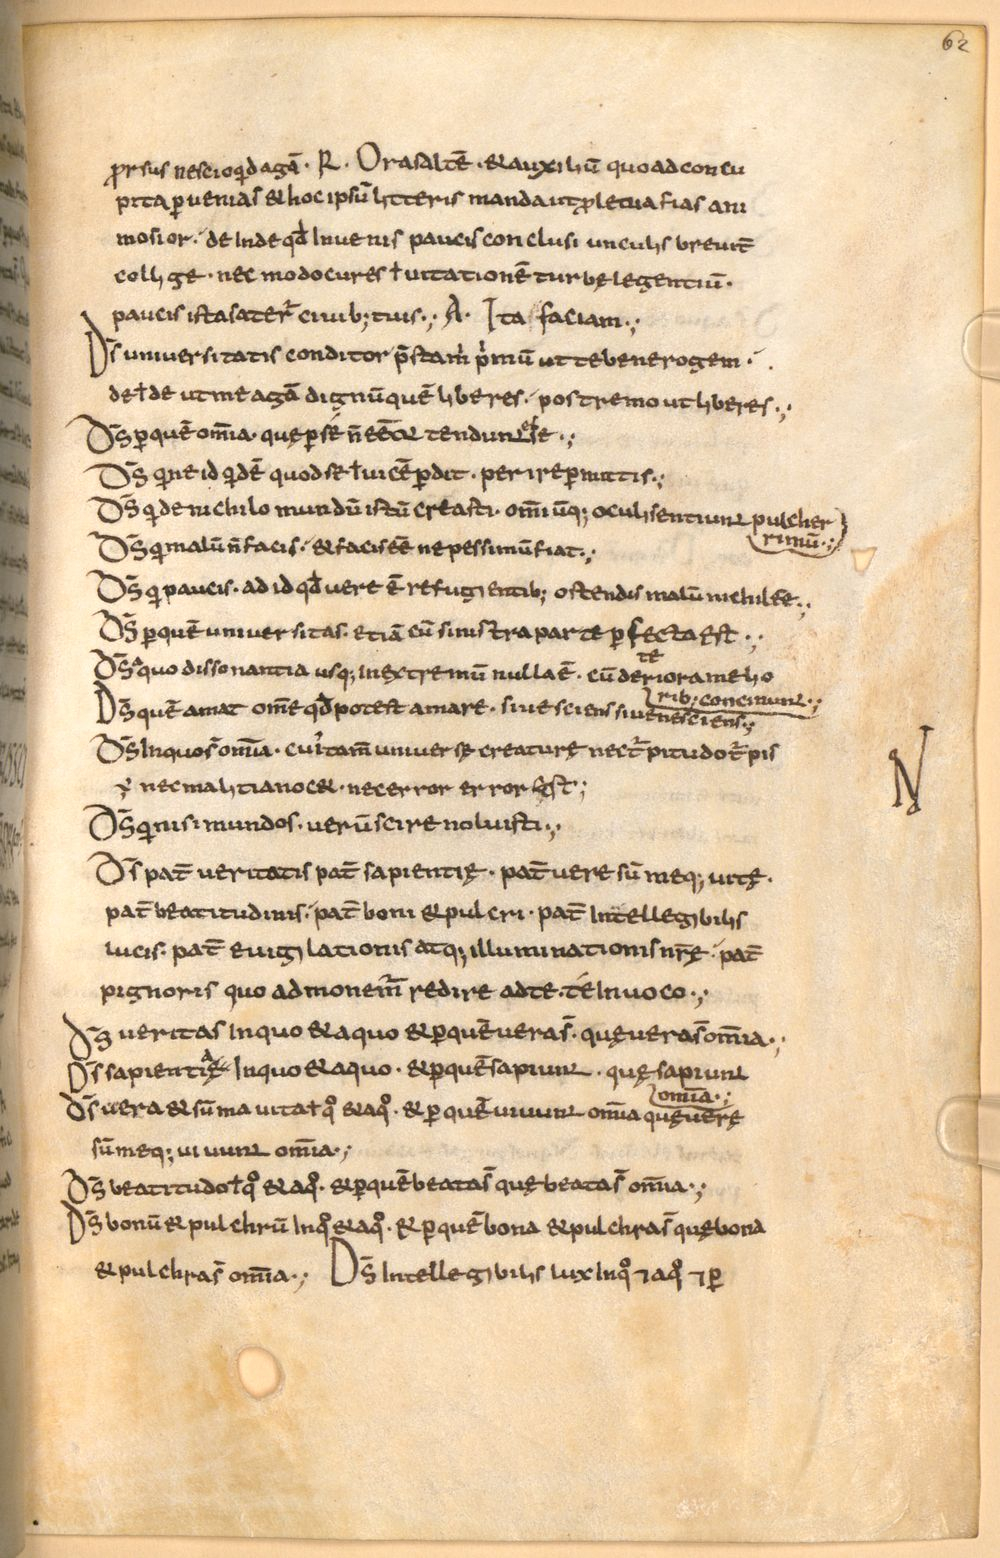 62
prorsus nescio qd agā. R. Ora saltē. & auxiliū quo ad concu
pita puenias & hoc ipsū litteris manda ut ple tua fias ani
mosior. deinde qd inuenis paucis conclusiunculis breuit̄
collige. nec modo cures ł uitationē turbę legentiū.
paucis ista sater̄ ciuib; tuis.; A. Ita faciam.;
Ds̄ uniuersitatis conditor p̄sta m̄ p̄mū ut te bene rogem.
de ł de ut me agā dignū quē liberes. postremo ut liberes.;
Ds̄ p quē om̄ia. quę p se n̄ eēnt tendunt eēe.;
Ds̄ q ne id qdē quod se łuicē pdit. perire pmittis.;
Ds̄ q de nichilo mundū istū creasti. om̄iūq; oculi sentiunt pulcher
rimū.;
Ds̄ q malū n̄ facis. & facis eē ne pessimū fiat.;
Ds̄ q paucis. ad id qd uere ē refugientib; ostendis malū nichil eē.;
Ds̄ p quē uniuersitas. etiā cū sinistra parte pfecta est.;
Ds̄ a quo dissonantia usq; in extremū nulla ē. cū deteriora melio
rib; concinunt.;
Ds̄ quē amat om̄e qd potest amare. siue sciens siue nesciens.;
Ds̄ in quo s̄ om̄ia. cui tam̄ uniuersę creaturę nec t̄pitudo t̄pis
ē nec malitia nocet. nec error errorē est;
Ds̄ q nisi mundos. uerū scire noluisti.;
Ds̄ pat̄ ueritatis pat̄ sapientię. pat̄ uere sūmeq; uitę.
pat̄ beatitudinis. pat̄ boni & pulcri. pat̄ intellegibilis
lucis. pat̄ euigilationis atq; illuminationis nr̄ę. pat̄
pignoris quo admonem̄ redire ad te. te inuoco.;
Ds̄ ueritas in quo & a quo & p quē uera s̄. quę uera s̄ om̄ia.;
Ds̄ sapientia in quo & a quo. & p quē sapiunt. quę sapiunt
om̄ia.;
Ds̄ uera & sūma uita ł qo & aqo. & p quē uiuunt om̄ia quę uere
sūmeq; uiuunt om̄ia.;
Ds̄ beatitudo ł qo & aqo. & p quē beata s̄ quę beata s̄ om̄ia.;
Ds̄ bonū & pulchrū in qo & aqo. & p quē bona & pulchra s̄ quę bona
& pulchra s̄ om̄ia.; Ds̄ intellegibilis lux in qo ⁊ aqo ⁊ p
N